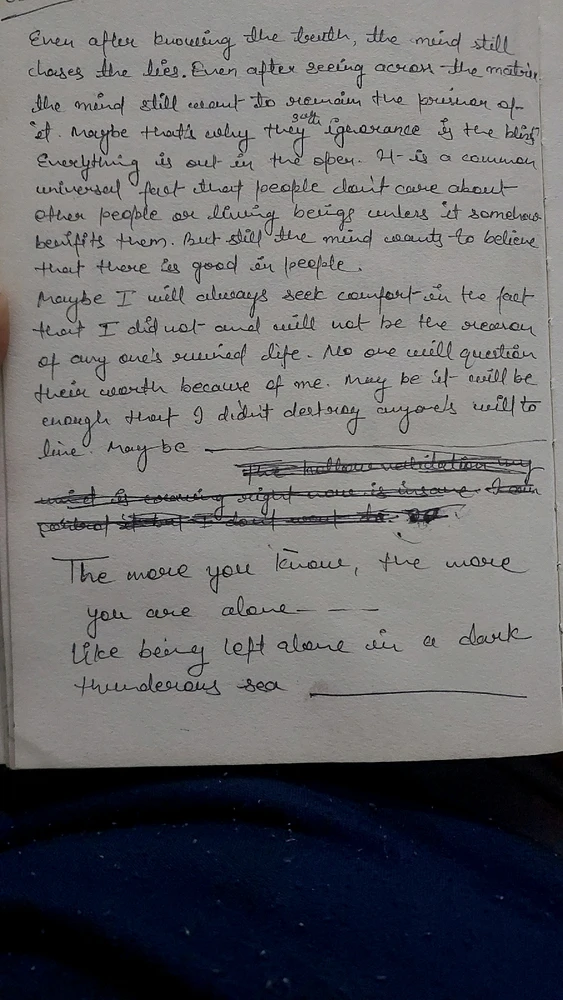 Even after knowing the truth, the mind still
chases the lies. Even after seeing across the matrix,
the mind still want to remain the prisoner of
it. Maybe that's why they say "ignorance is the bliss"
Everything is out in the open. It is a common
universal fact that people don't care about
other people or living beings unless it somehow
benifits them. But still the mind wants to believe
that there is good in people.
Maybe I will always seek comfort in the fact
that I did not and will not be the reason
of any one's ruined life. No one will question
their worth because of me. May be it will be
enough that I didn't destroy anyone's will to
live. May be
The hollow validation my
mind is craving right now is insane. I can
but I don't want to.
The more you know, the more
you are alone - - -
Like being left alone in a dark
thunderous sea